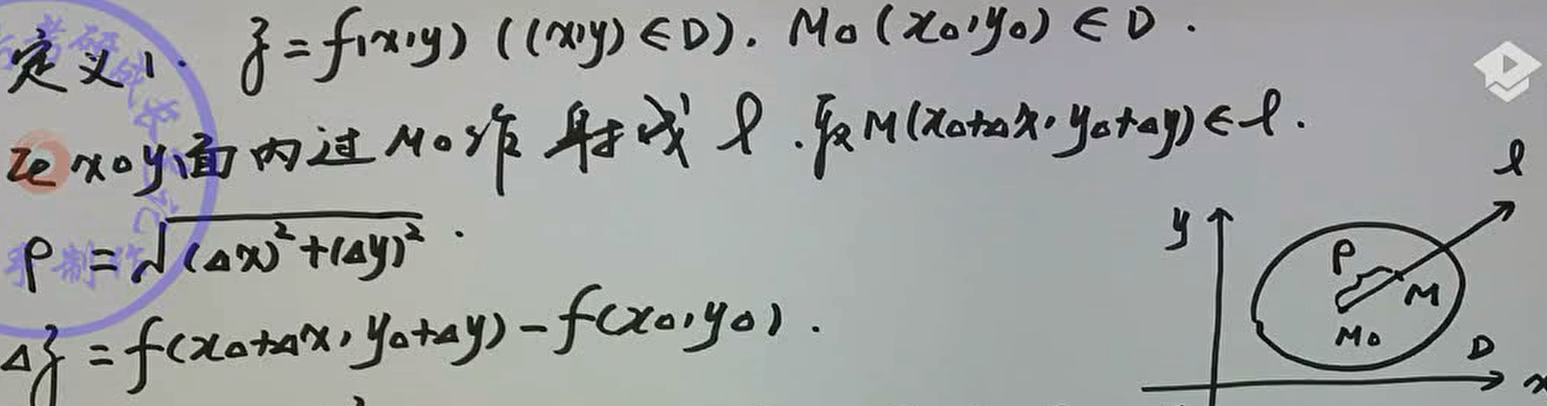 定义1. z=f(x,y) ((x,y)∈D). M₀(x₀,y₀)∈D.
在xoy面内过M₀作射线 l. 取M(x₀+Δx, y₀+Δy)∈l.
ρ=√((Δx)²+(Δy)²).
Δz=f(x₀+Δx, y₀+Δy)-f(x₀,y₀).
l
y
ρ
M
M₀
D
x